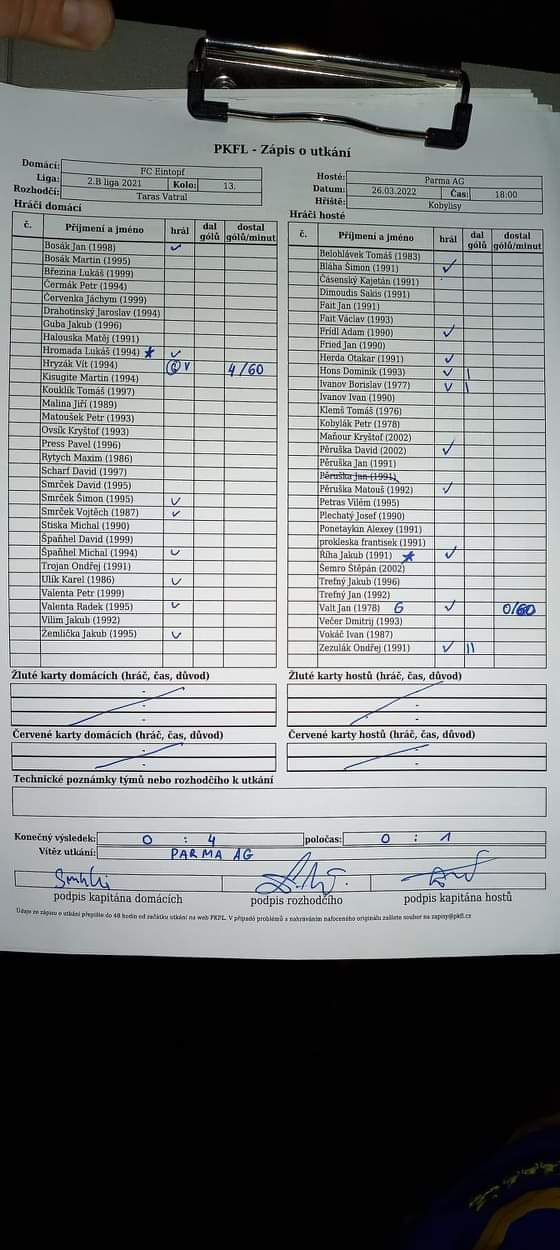 PKFL - Zápis o utkání
Domácí: FC Eintopf
Liga: 2.B liga 2021 Kolo: 13.
Rozhodčí: Taras Vatral
Hosté: Parma AG
Datum: 26.03.2022 Čas: 18:00
Hřiště: Kobylisy
Hráči domácí
č. Příjmení a jméno hrál dal gólů dostal gólů/minut
Bosák Jan (1998) ✓
Bosák Martin (1995)
Březina Lukáš (1999)
Čermák Petr (1994)
Červenka Jáchym (1999)
Drahotínský Jaroslav (1994)
Guba Jakub (1996)
Halouska Matěj (1991)
Hromada Lukáš (1994) ★ ✓
Hryzák Vít (1994) G ✓ 4/60
Kisugite Martin (1994)
Kouklík Tomáš (1997)
Malina Jiří (1989)
Matoušek Petr (1993)
Ovsík Kryštof (1993)
Press Pavel (1996)
Rytych Maxim (1986)
Scharf David (1997)
Smrček David (1995)
Smrček Šimon (1995) ✓
Smrček Vojtěch (1987) ✓
Stiska Michal (1990)
Španhel David (1999)
Španhel Michal (1994) ✓
Trojan Ondřej (1991)
Ulik Karel (1986) ✓
Valenta Petr (1999)
Valenta Radek (1995) ✓
Vilím Jakub (1992)
Žemlička Jakub (1995) ✓
Hráči hosté
č. Příjmení a jméno hrál dal gólů dostal gólů/minut
Belohlávek Tomáš (1983)
Bláha Šimon (1991) ✓
Čásenský Kajetán (1991)
Dimoudis Sakis (1991)
Fait Jan (1991)
Fait Václav (1993)
Frídl Adam (1990) ✓
Fried Jan (1990)
Herda Otakar (1991) ✓
Hons Dominik (1993) ✓ |
Ivanov Borislav (1977) ✓ |
Ivanov Ivan (1990)
Klemš Tomáš (1976)
Kobylák Petr (1978)
Maňour Kryštof (2002)
Pěruška David (2002) ✓
Pěruška Jan (1991)
Pěruška Jan (1991)
Pěruška Matouš (1992) ✓
Petras Vilém (1995)
Plechatý Josef (1990)
Ponetaykin Alexey (1991)
prokleska frantisek (1991)
Říha Jakub (1991) ★ ✓
Šemro Štěpán (2002)
Trefný Jakub (1996)
Trefný Jan (1992)
Valt Jan (1978) G ✓ 0/60
Večer Dmitrij (1993)
Vokáč Ivan (1987)
Zezulák Ondřej (1991) ✓ ||
Žluté karty domácích (hráč, čas, důvod)
-
-
-
Žluté karty hostů (hráč, čas, důvod)
-
-
-
Červené karty domácích (hráč, čas, důvod)
-
-
Červené karty hostů (hráč, čas, důvod)
-
-
Technické poznámky týmů nebo rozhodčího k utkání
Konečný výsledek: 0 : 4 poločas: 0 : 1
Vítěz utkání: PARMA AG
podpis kapitána domácích podpis rozhodčího podpis kapitána hostů
Údaje ze zápisu o utkání přepište do 48 hodin od začátku utkání na web PKFL. V případě problémů s nahráváním nafoceného originálu zašlete soubor na zapisy@pkfl.cz